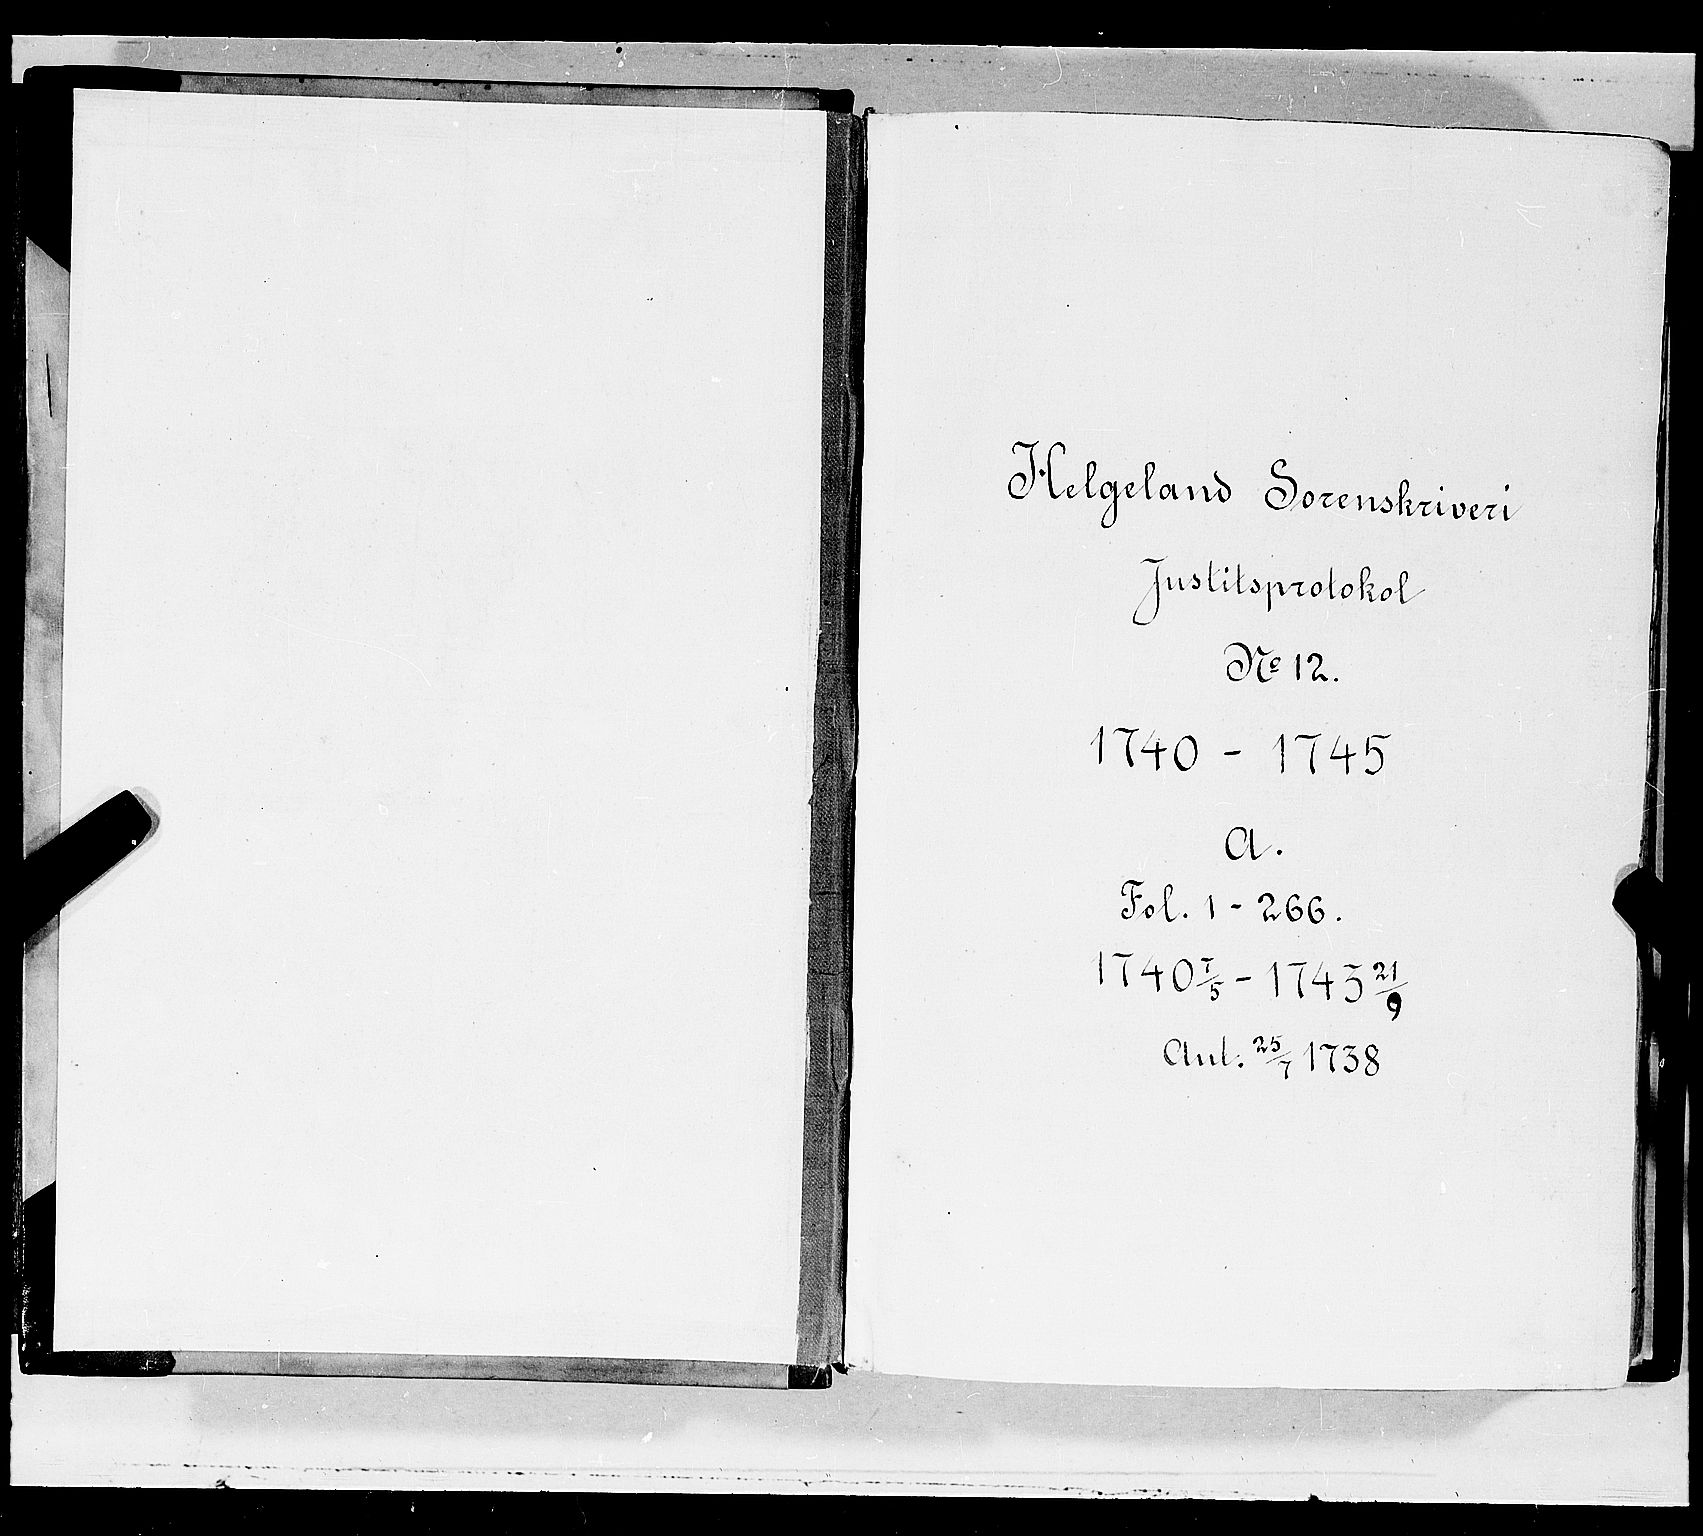 Helgeland Sorenskriveri
Justitsprotokol
No 12.
1740 - 1745
A.
Fol. 1 - 266.
1740 7/5 - 1743 21/9
Aut. 25/7 1738